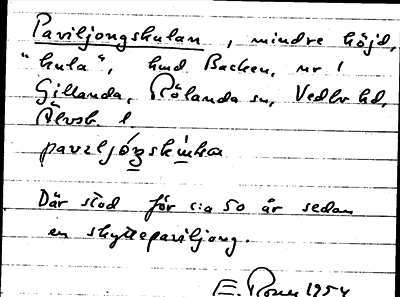 Paviljongskulan, mindre höjd,
"kula", hmd Backen, nr 1
Gillanda, Rölanda sn, Vedbo hd,
Älvsb. l
Där stod för c:a 50 år sedan
en skyttepaviljong.
E. 1954